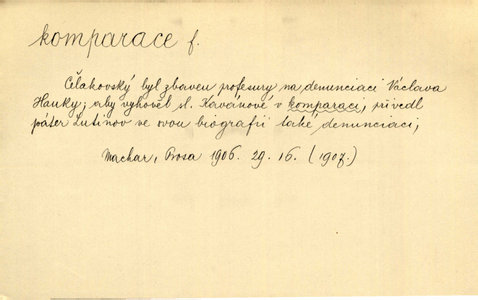 komparace f.
Čelakovský byl zbaven profesury na denunciaci Václava
Hanky; aby vyhověl sl. Kavánkové v komparaci, přivedl
páter Lutinov ve svou biografii také denunciaci;
Machar, Prosa 1906. 29. 16. (1907.)